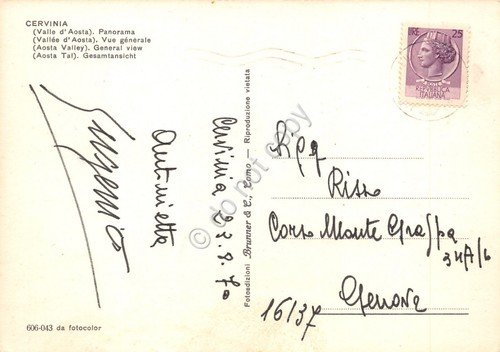 CERVINIA
(Valle d'Aosta). Panorama
(Vallée d'Aosta). Vue générale
(Aosta Valley). General view
(Aosta Tal). Gesamtansicht
Eugenio
Antonietta
Cervinia 27.8.70
Fotoedizioni Brunner & C., Como - Riproduzione vietata
do not copy
LIRE 25
REPUBBLICA
ITALIANA
Risso
Corso Monte Grappa
34A/6
16137 Genova
606-043 da fotocolor